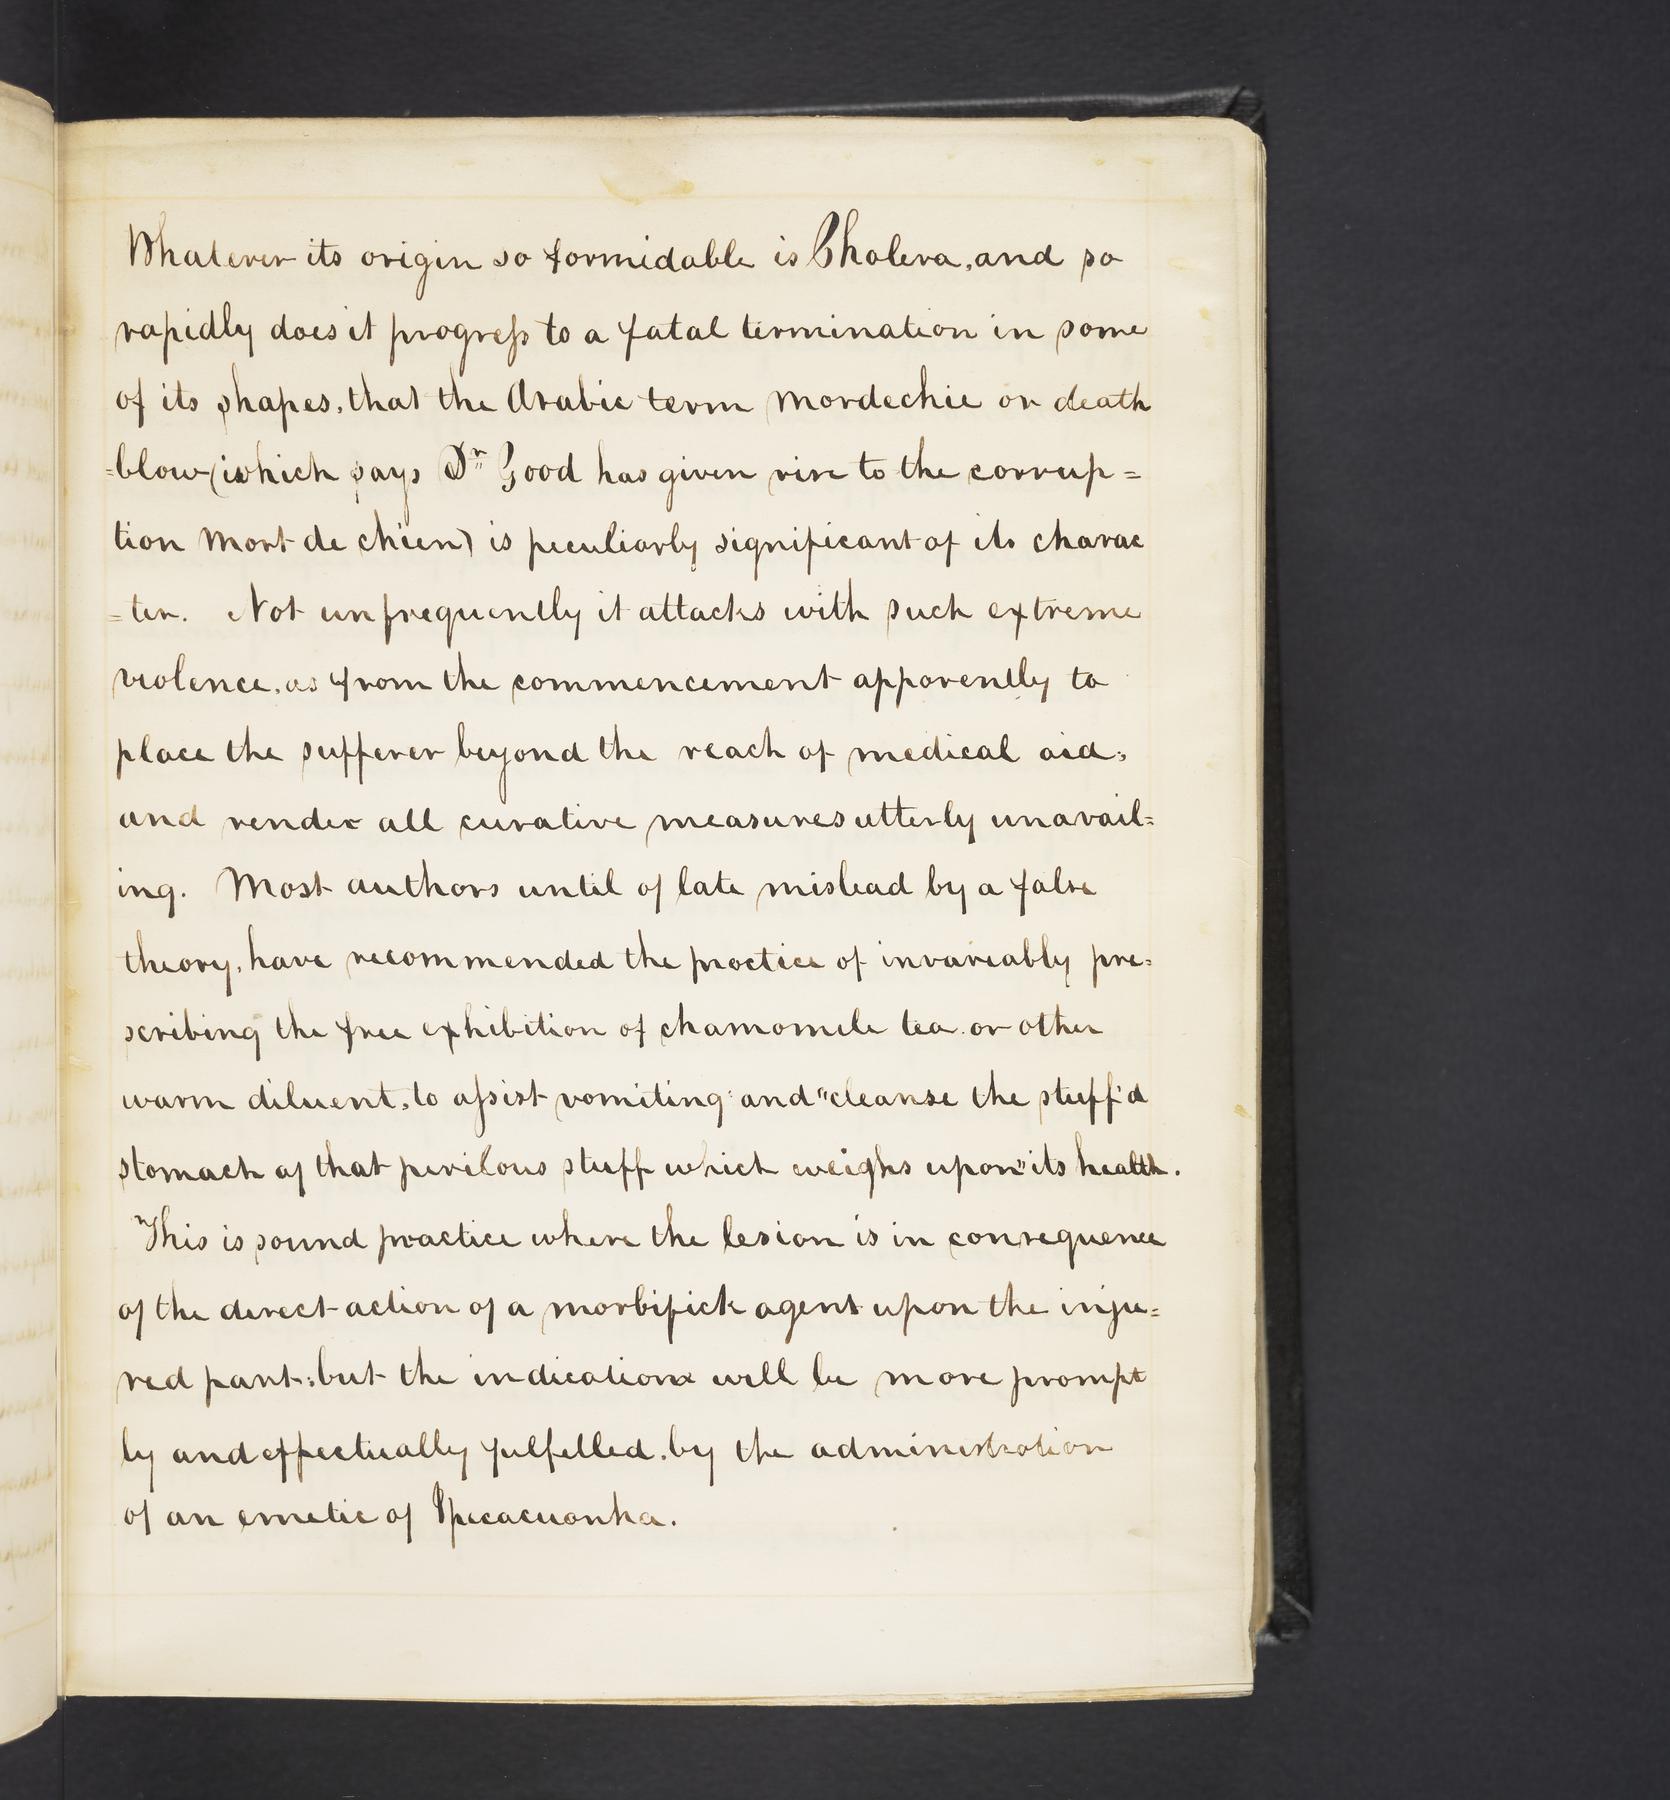 Whatever its origin so formidable is Cholera, and so
rapidly does it progress to a fatal termination in some
of its shapes, that the Arabic term Mordechie or death
=blow (which says Dr Good has given rise to the corrup=
tion Mort de chien) is peculiarly significant of its charac
=ter. Not unfrequently it attacks with such extreme
violence, as from the commencement apparently to
place the sufferer beyond the reach of medical aid,
and render all curative measures utterly unavail=
ing. Most authors until of late mislead by a false
theory, have recommended the practice of invareably pre=
scribing the free exhibition of chamomile tea or other
warm diluent, to assist vomiting and "cleanse the stuff'd
stomach of that perilous stuff which weighs upon" its health.
This is sound practice where the lesion is in consequence
of the direct action of a morbifick agent upon the inju=
red part; but the indications will be more prompt
ly and effectually fulfilled, by the administration
of an emetic of Ipecacuanha.